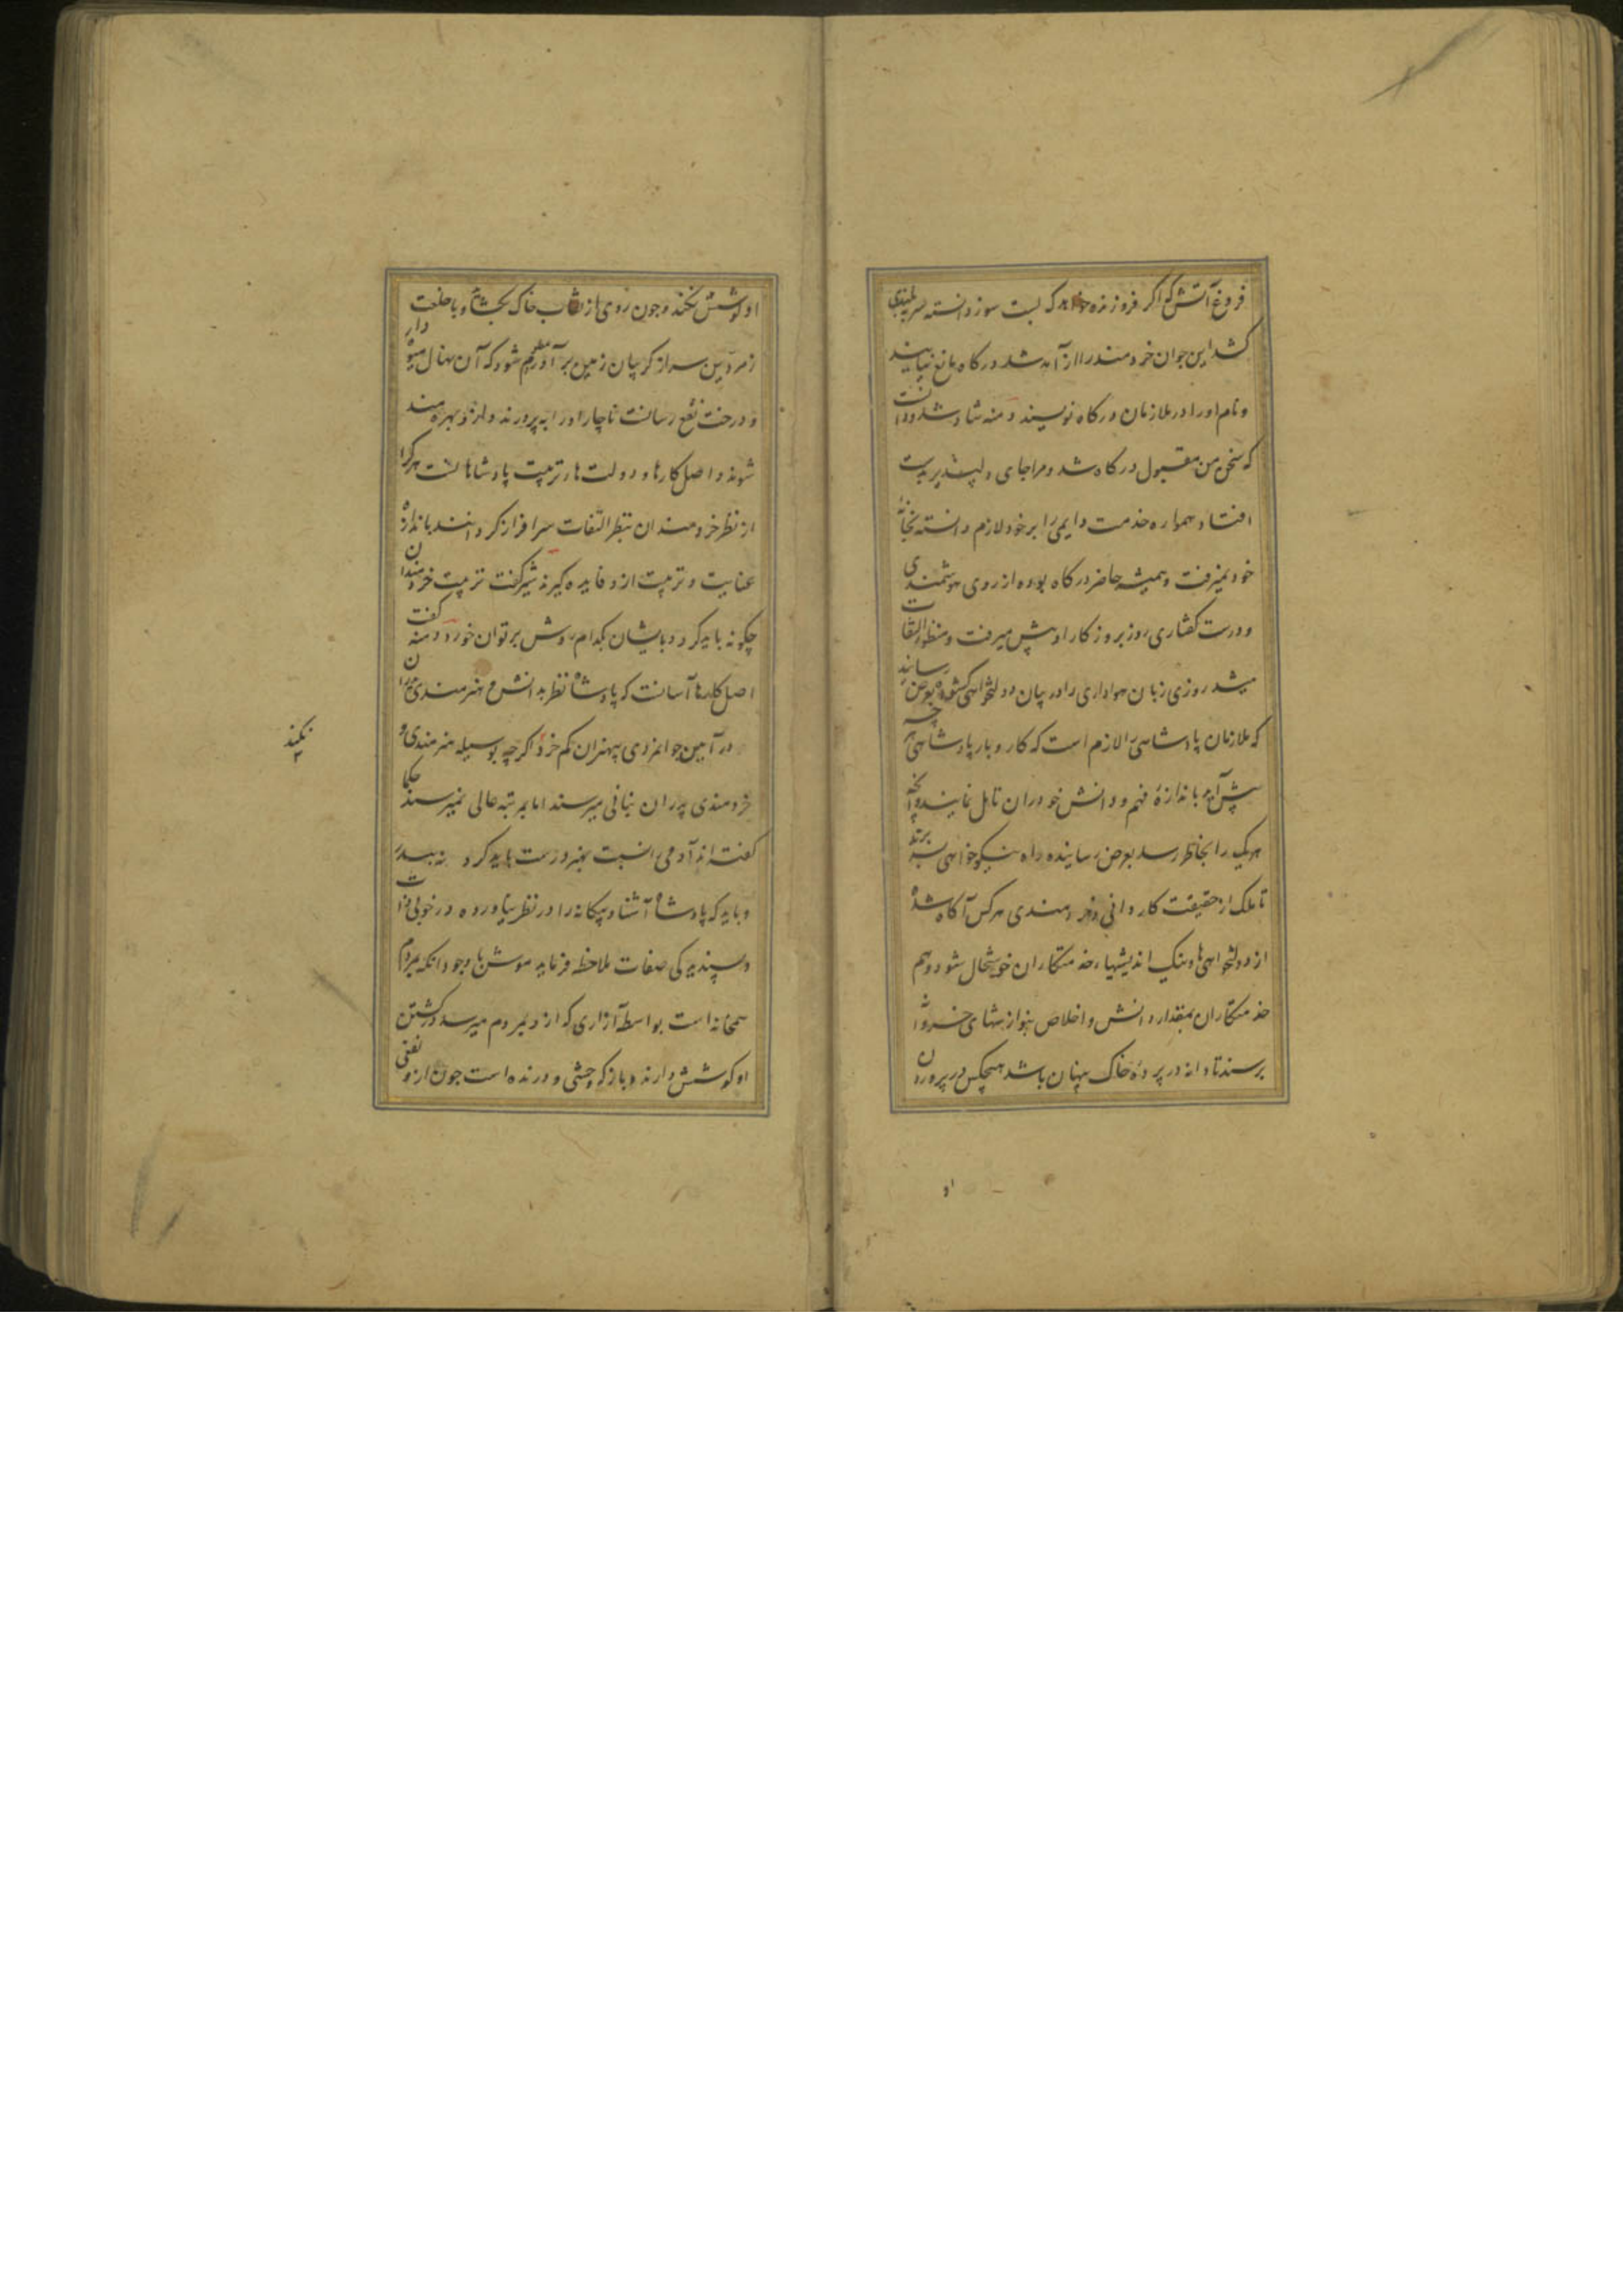 فروغ آتش که اگر فروزنده خواهد که پست سوزد البته سر به بلندی
کشد این جوان خردمند را از آمد شد درگاه مانع نیایند
و نام او را در ملازمان درگاه نویسند دمنه شاد شد و دانست
که سخن من مقبول درگاه شد و مرا جای دلپذیر بدست
افتاد همواره خدمت دایمی را بر خود لازم دانسته بخانهٔ
خود نمیرفت و همیشه حاضر درگاه بوده از روی هوشمندی
و درست گفتاری روز بروز کار او پیش میرفت و منظور التفات
میشد روزی زبان هواداری را در بیان دولتخواهی گشوده بعرض رسانید
که ملازمان پادشاهی را لازم است که کار و بار پادشاهی هر چه
پیش آید باندازهٔ فهم و دانش خود در آن تامل نمایند و آنچه
هر یک را بخاطر رسد بعرض رسانیده راه نیکوخواهی سپرند
تا ملک از حقیقت کاردانی و خردمندی هر کس آگاه شده
از دولتخواهی‌ها و نیک اندیشیهاء خدمتکاران خوشحال شود و هم
خدمتکاران بمقدار دانش و اخلاص بنوازشهای خسروانه
برسند تا دانه در پردهٔ خاک پنهان باشد هیچکس در پروردن
او
او کوشش نکند و چون روی از نقاب خاک بگشاد و با خلعت
زمردین سر از گریبان زمین برآورد معلوم شود که آن نهال میوه دار
و درخت نفع رسانست ناچار او را بپرورند و ازو بهره مند
شوند و اصل کارها و دولت‌ها تربیت پادشاهانست هر کرا
از نظر خردمندان بنظر التفات سرافراز گردانند باندازهٔ
عنایت و تربیت ازو فایده گیرند شیر گفت تربیت خردمندان
چگونه باید کرد و بایشان بکدام روش بر توان خورد دمنه گفت
اصل کارها آنست که پادشاه نظر بدانش و هنرمندی
در آیین جوانمردی بهنران کم خرد اگر چه بوسیله هنرمندی و
نکند
خردمندی پدران بنانی میرسند اما بمرتبه عالی نمیرسند حکما
گفته‌اند آدمی را نسبت بهنر درست باید کرد نه بپدر
و باید که پادشاه آشنا و بیگانه را در نظر نیاورده در خوبی ذات
و پسندیدگی صفات ملاحظه فرماید موش با وجود آنکه بمردم
همخانه است بواسطهٔ آزاری که ازو بمردم میرسد در کشتن
او کوشش دارند و باز که وحشی و درنده است چون ازو نفعی